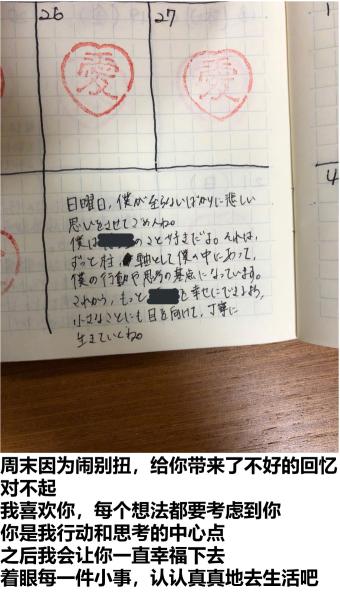 26
27
愛
愛
日曜日、僕が至らないばかりに悲しい
思いをさせてごめんね。
僕は のこと好きだよ。それは、
ずっと柱、軸として僕の中にあって、
僕の行動や思考の基点になっています。
これから、もっと を幸せにできるよう、
小さなことにも目を向けて、丁寧に
生きていくね。
4
周末因为闹别扭，给你带来了不好的回忆
对不起
我喜欢你，每个想法都要考虑到你
你是我行动和思考的中心点
之后我会让你一直幸福下去
着眼每一件小事，认认真真地去生活吧